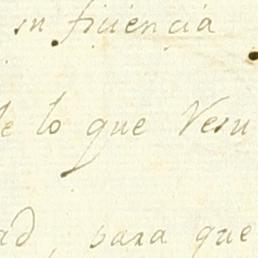 su ficiencia
de lo que Vesu
ad, para que